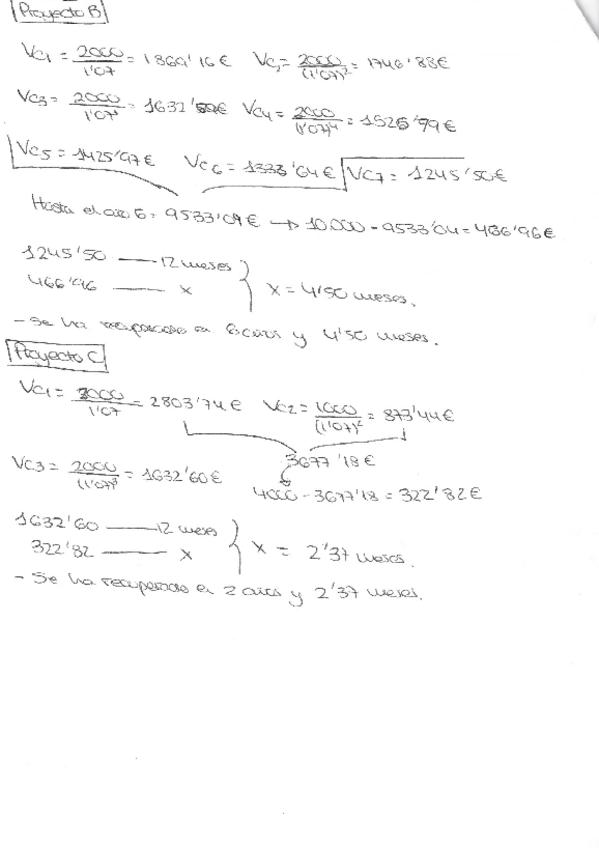 Proyecto B
VC1 = 2000/1'07 = 1869'16€ VC2 = 2000/(1'07)² = 1746'88€
VC3 = 2000/1'07³ = 1632'59€ VC4 = 2000/(1'07)⁴ = 1525'79€
VC5 = 1425'97€ VC6 = 1333'64€ VC7 = 1245'50€
Hasta el año 6 = 9533'04€ → 10.000 - 9533'04 = 466'96€
1245'50 — 12 meses
466'96 — x } x = 4'50 meses.
- Se ha recuperado en 6 años y 4'50 meses.
Proyecto C
VC1 = 3000/1'07 = 2803'74€ VC2 = 1000/(1'07)² = 873'44€
3677'18€
VC3 = 2000/(1'07)³ = 1632'60€
4000 - 3677'18 = 322'82€
1632'60 — 12 meses
322'82 — x } x = 2'37 meses.
- Se ha recuperado en 2 años y 2'37 meses.